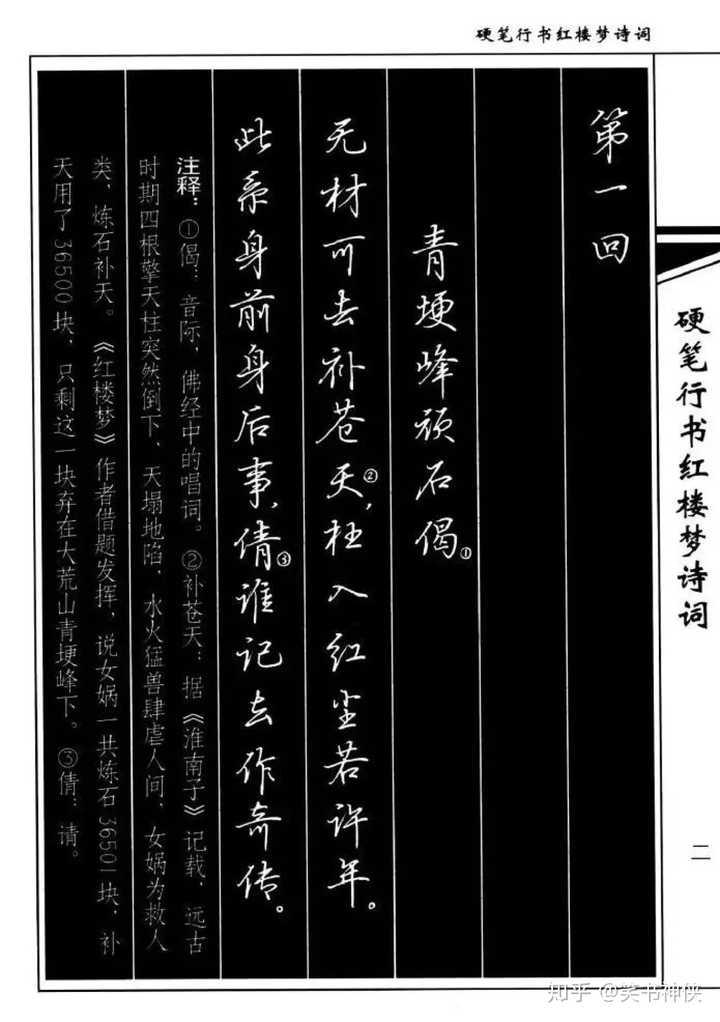 硬笔行书红楼梦诗词
第一回
青埂峰顽石偈①
无材可去补苍天②，枉入红尘若许年。
此系身前身后事，倩③谁记去作奇传。
注释：①偈：音际，佛经中的唱词。②补苍天：据《淮南子》记载，远古
时期四根擎天柱突然倒下，天塌地陷，水火猛兽肆虐人间，女娲为救人
类，炼石补天。《红楼梦》作者借题发挥，说女娲一共炼石36501块，补
天用了36500块，只剩这一块弃在大荒山青埂峰下。③倩：请。
硬笔行书红楼梦诗词
二
知乎 @笑书神侠